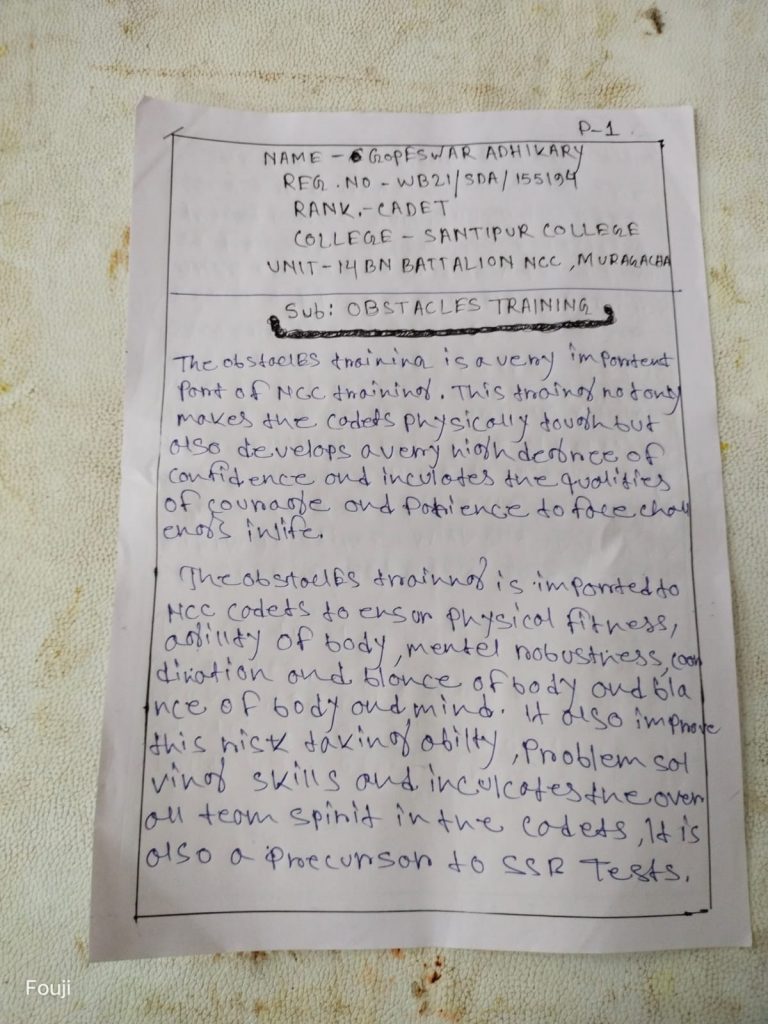 P-1.
NAME - GOPESWAR ADHIKARY
REG. NO - WB21/SDA/155194
RANK.-CADET
COLLEGE - SANTIPUR COLLEGE
UNIT-14 BN BATTALION NCC, MURAGACHA
Sub: OBSTACLES TRAINING
The obstacles training is a very importent
Part of NCC training. This traing not only
makes the cadets physically tough but
also develops a very high degree of
confidence and inculates the qualities
of courage and patience to face chall
engs in life.
The obstacles trainng is imparted to
NCC cadets to ensur physical fitness,
agillty of body, mentel robustness, coor
dination and blance of body and bla
nce of body and mind. It also improve
this risk taking abilty, Problem sol
ving skills and inculcates the over
all team spirit in the cadets, It is
also a Precursor to SSB Tests.
Fouji